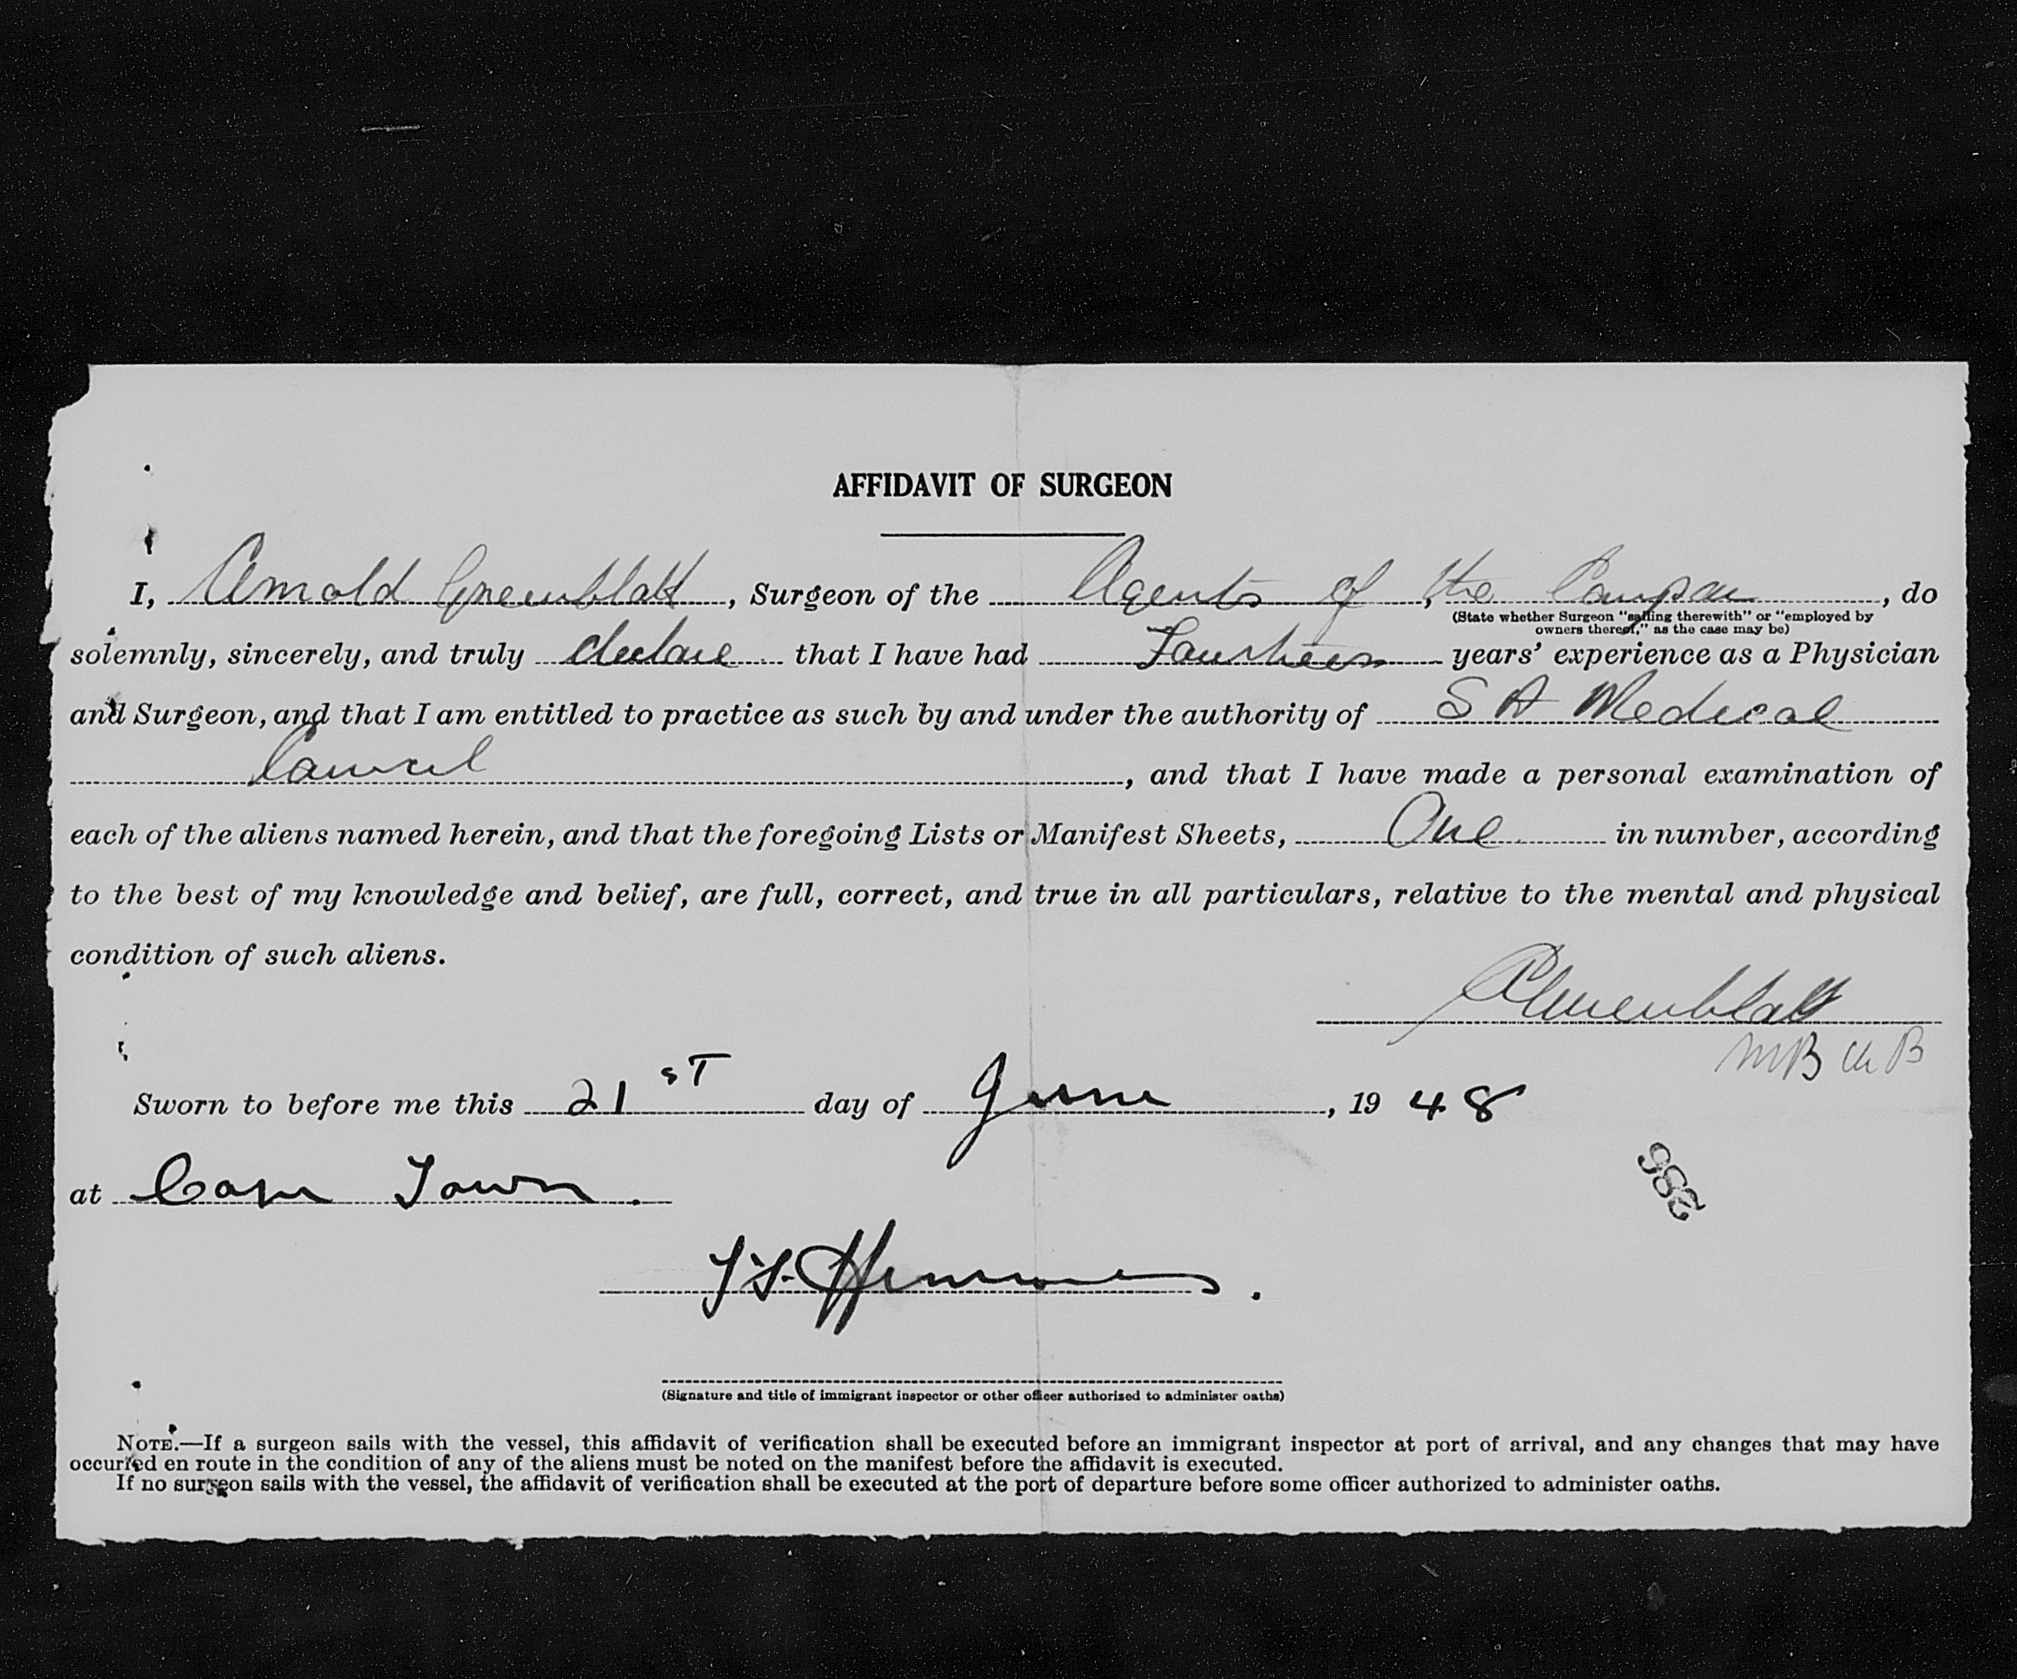 AFFIDAVIT OF SURGEON
I, Arnold Greenblatt, Surgeon of the Agents of, the Company, do
(State whether Surgeon "sailing therewith" or "employed by
owners thereof," as the case may be)
solemnly, sincerely, and truly declare that I have had Fourteen years' experience as a Physician
and Surgeon, and that I am entitled to practice as such by and under the authority of S A Medical
Council, and that I have made a personal examination of
each of the aliens named herein, and that the foregoing Lists or Manifest Sheets, One in number, according
to the best of my knowledge and belief, are full, correct, and true in all particulars, relative to the mental and physical
condition of such aliens.
AGreenblatt
MB Ch B
Sworn to before me this 21ST day of June, 19 48
at Cape Town.
986
(Signature and title of immigrant inspector or other officer authorized to administer oaths)
NOTE.—If a surgeon sails with the vessel, this affidavit of verification shall be executed before an immigrant inspector at port of arrival, and any changes that may have
occurred en route in the condition of any of the aliens must be noted on the manifest before the affidavit is executed.
If no surgeon sails with the vessel, the affidavit of verification shall be executed at the port of departure before some officer authorized to administer oaths.